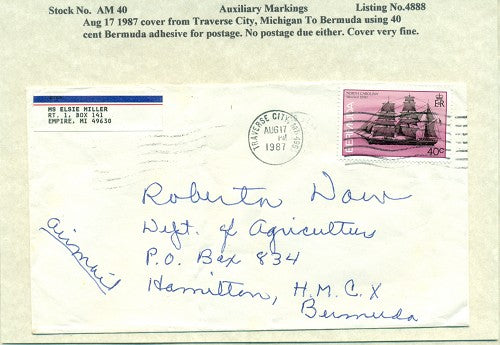 Stock No. AM 40 Auxiliary Markings Listing No.4888
Aug 17 1987 cover from Traverse City, Michigan To Bermuda using 40
cent Bermuda adhesive for postage. No postage due either. Cover very fine.
MS ELSIE MILLER
RT. 1, BOX 141
EMPIRE, MI 49630
TRAVERSE CITY, MI 496
AUG 17
PM
1987
NORTH CAROLINA
BERMUDA
E II R
40c
Roberta Dow
Dept. of Agriculture
P.O. Box 834
Hamilton, H.M.C.X
Bermuda
airmail